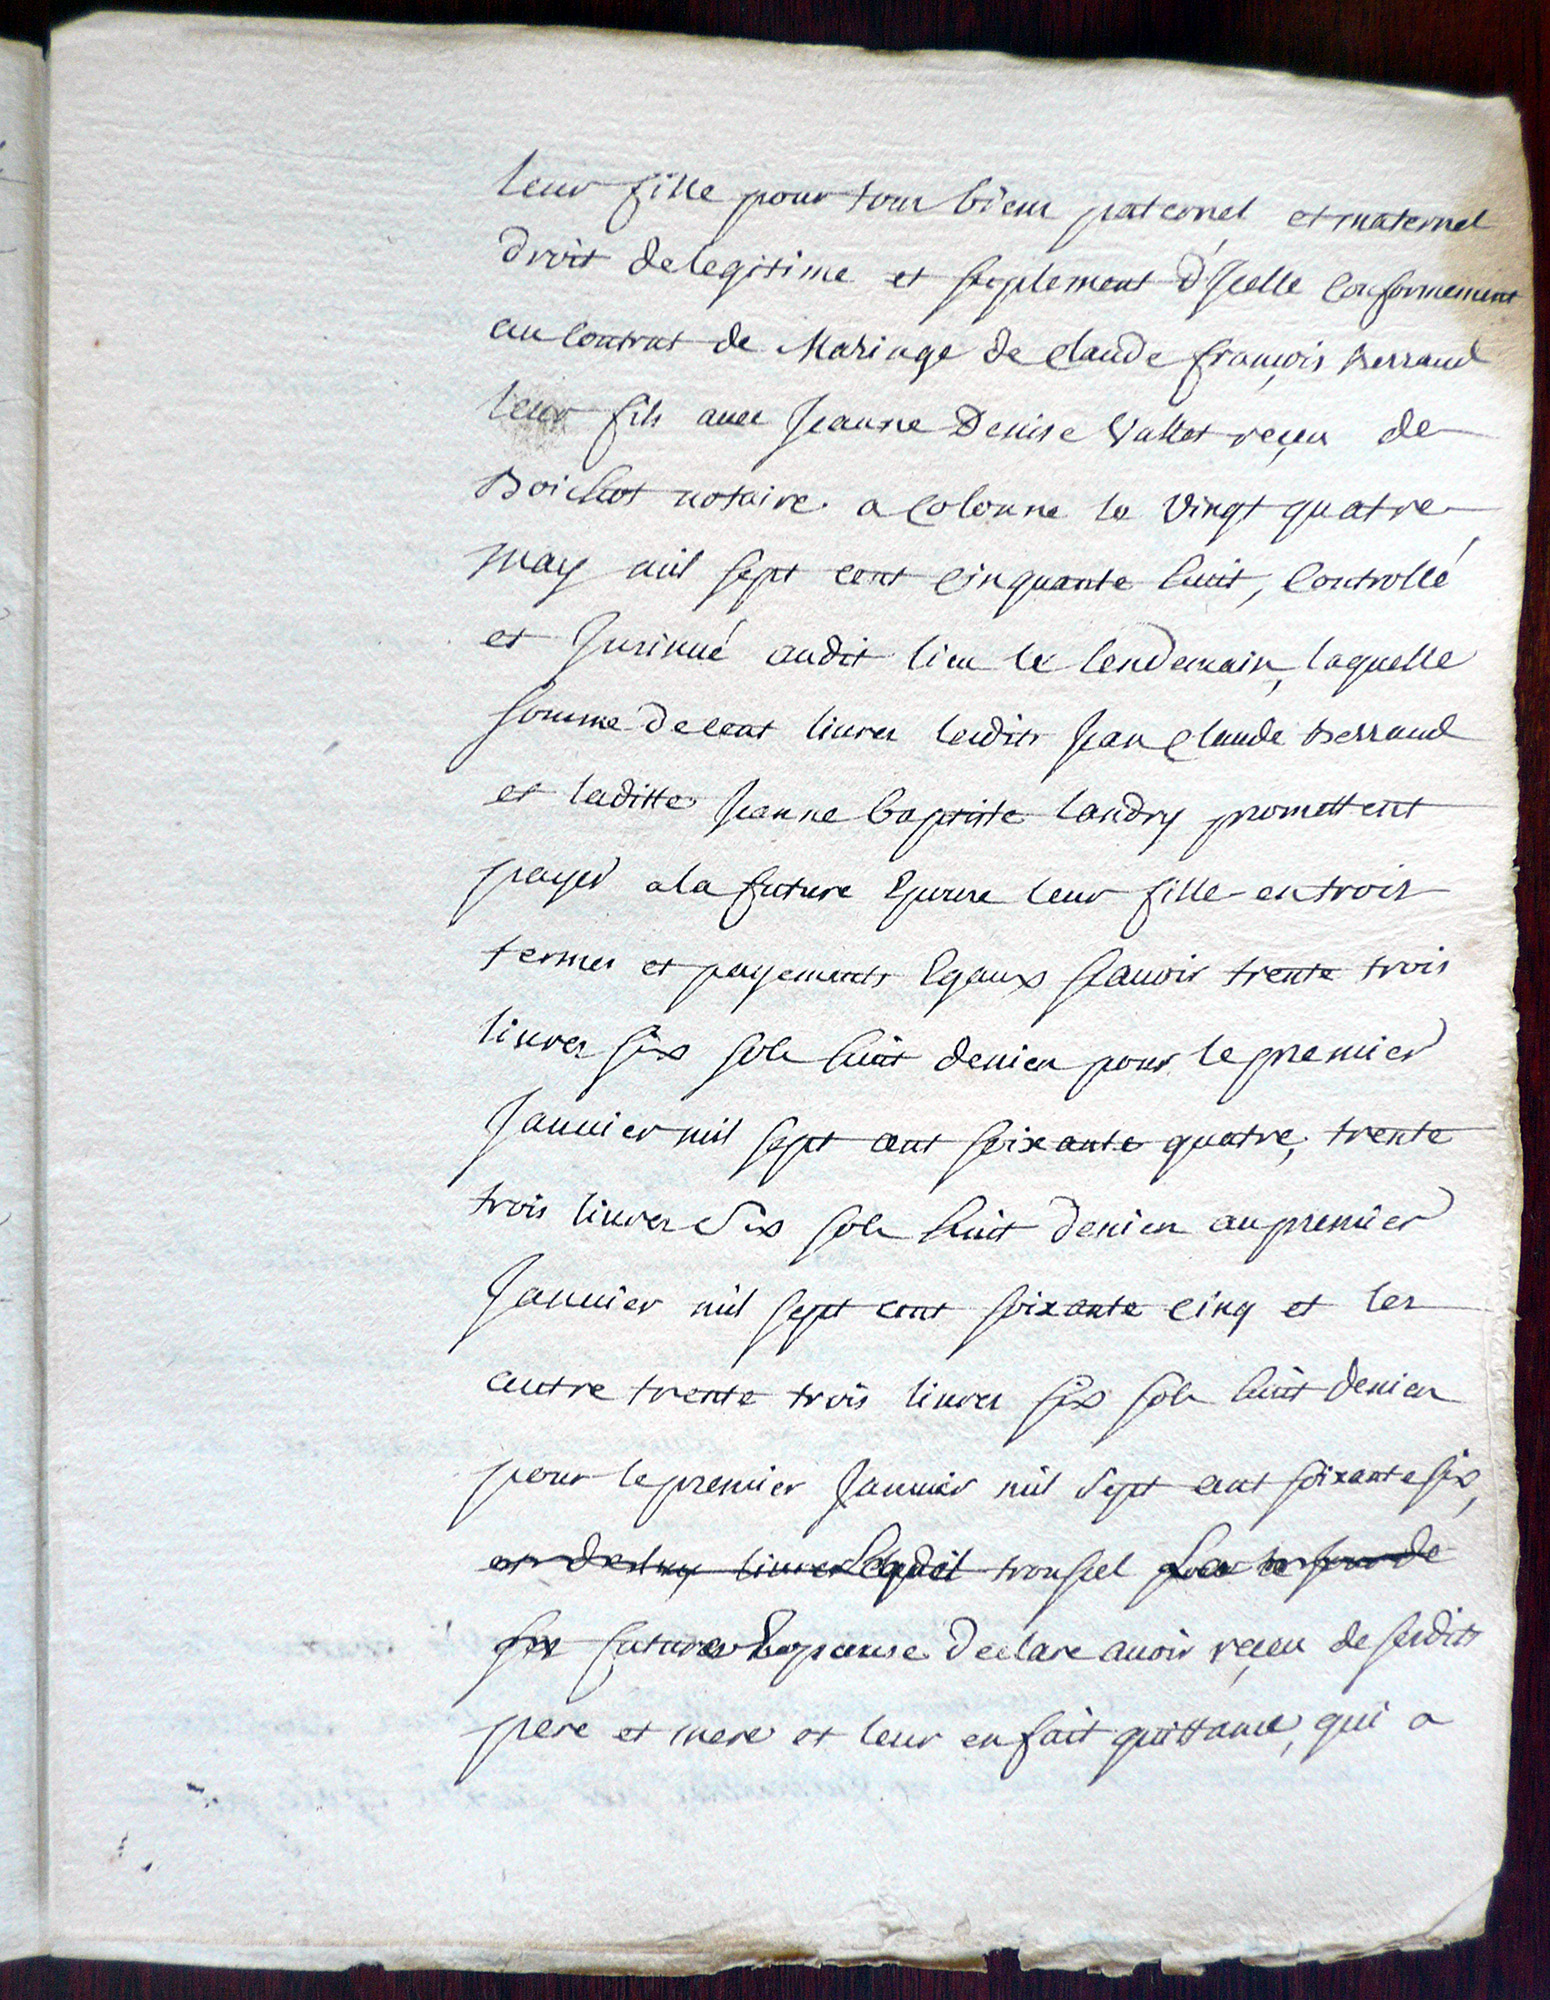 leur fille pour tous biens paternel et maternel
droit de legitime et suplement d'Jcelle conformement
au contrat de Mariage de Claude françois Berraud
leur fils avec Jeanne Denise Vallet reçeu de
Boichot notaire a Colonne le vingt quatre
may mil sept cent cinquante huit, controllé
et Jnsinué audit lieu le lendemain, laquelle
somme de cent livres lesdits Jean Claude Berraud
et laditte Jeanne baptiste landry promettent
payer a la future Epouse leur fille en trois
termes et payements Egaux scauoir trente trois
liures six sols huit deniers pour le premier
Januier mil sept cent soixante quatre, trente
trois liures six sols huit deniers au premier
Januier mil sept cent soixante cinq et les
autre trente trois liures six sols huit deniers
pour le premier Januier mil sept cent soixante six,
Lequel troussel
future Epouse declare auoir reçeu de sesdits
pere et mere et leur en fait quittance, qui a